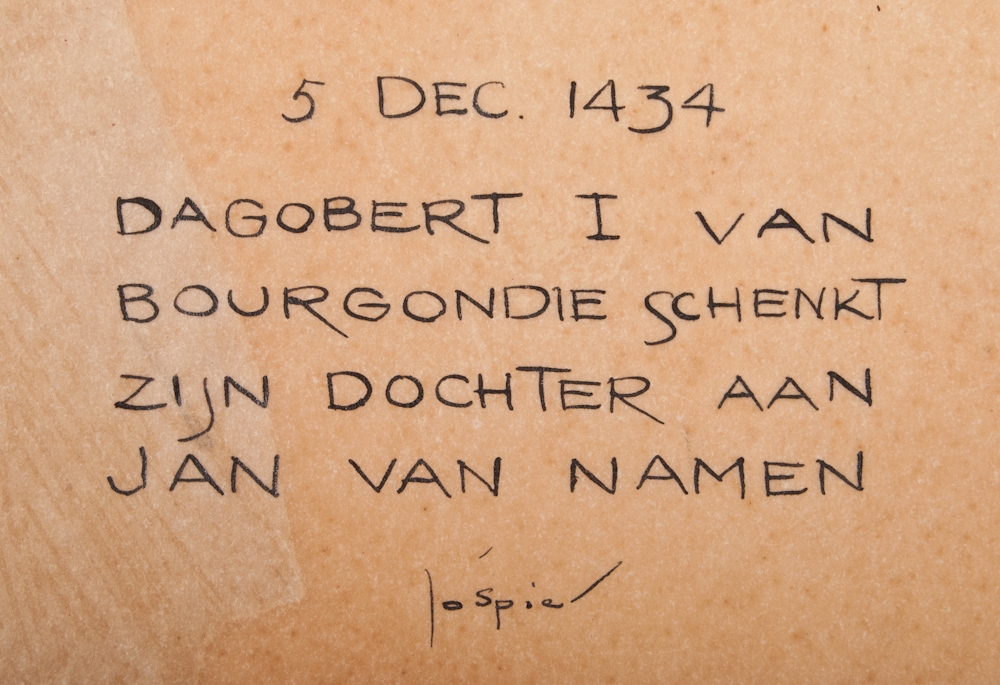 5 DEC. 1434
DAGOBERT I VAN
BOURGONDIE SCHENKT
ZIJN DOCHTER AAN
JAN VAN NAMEN